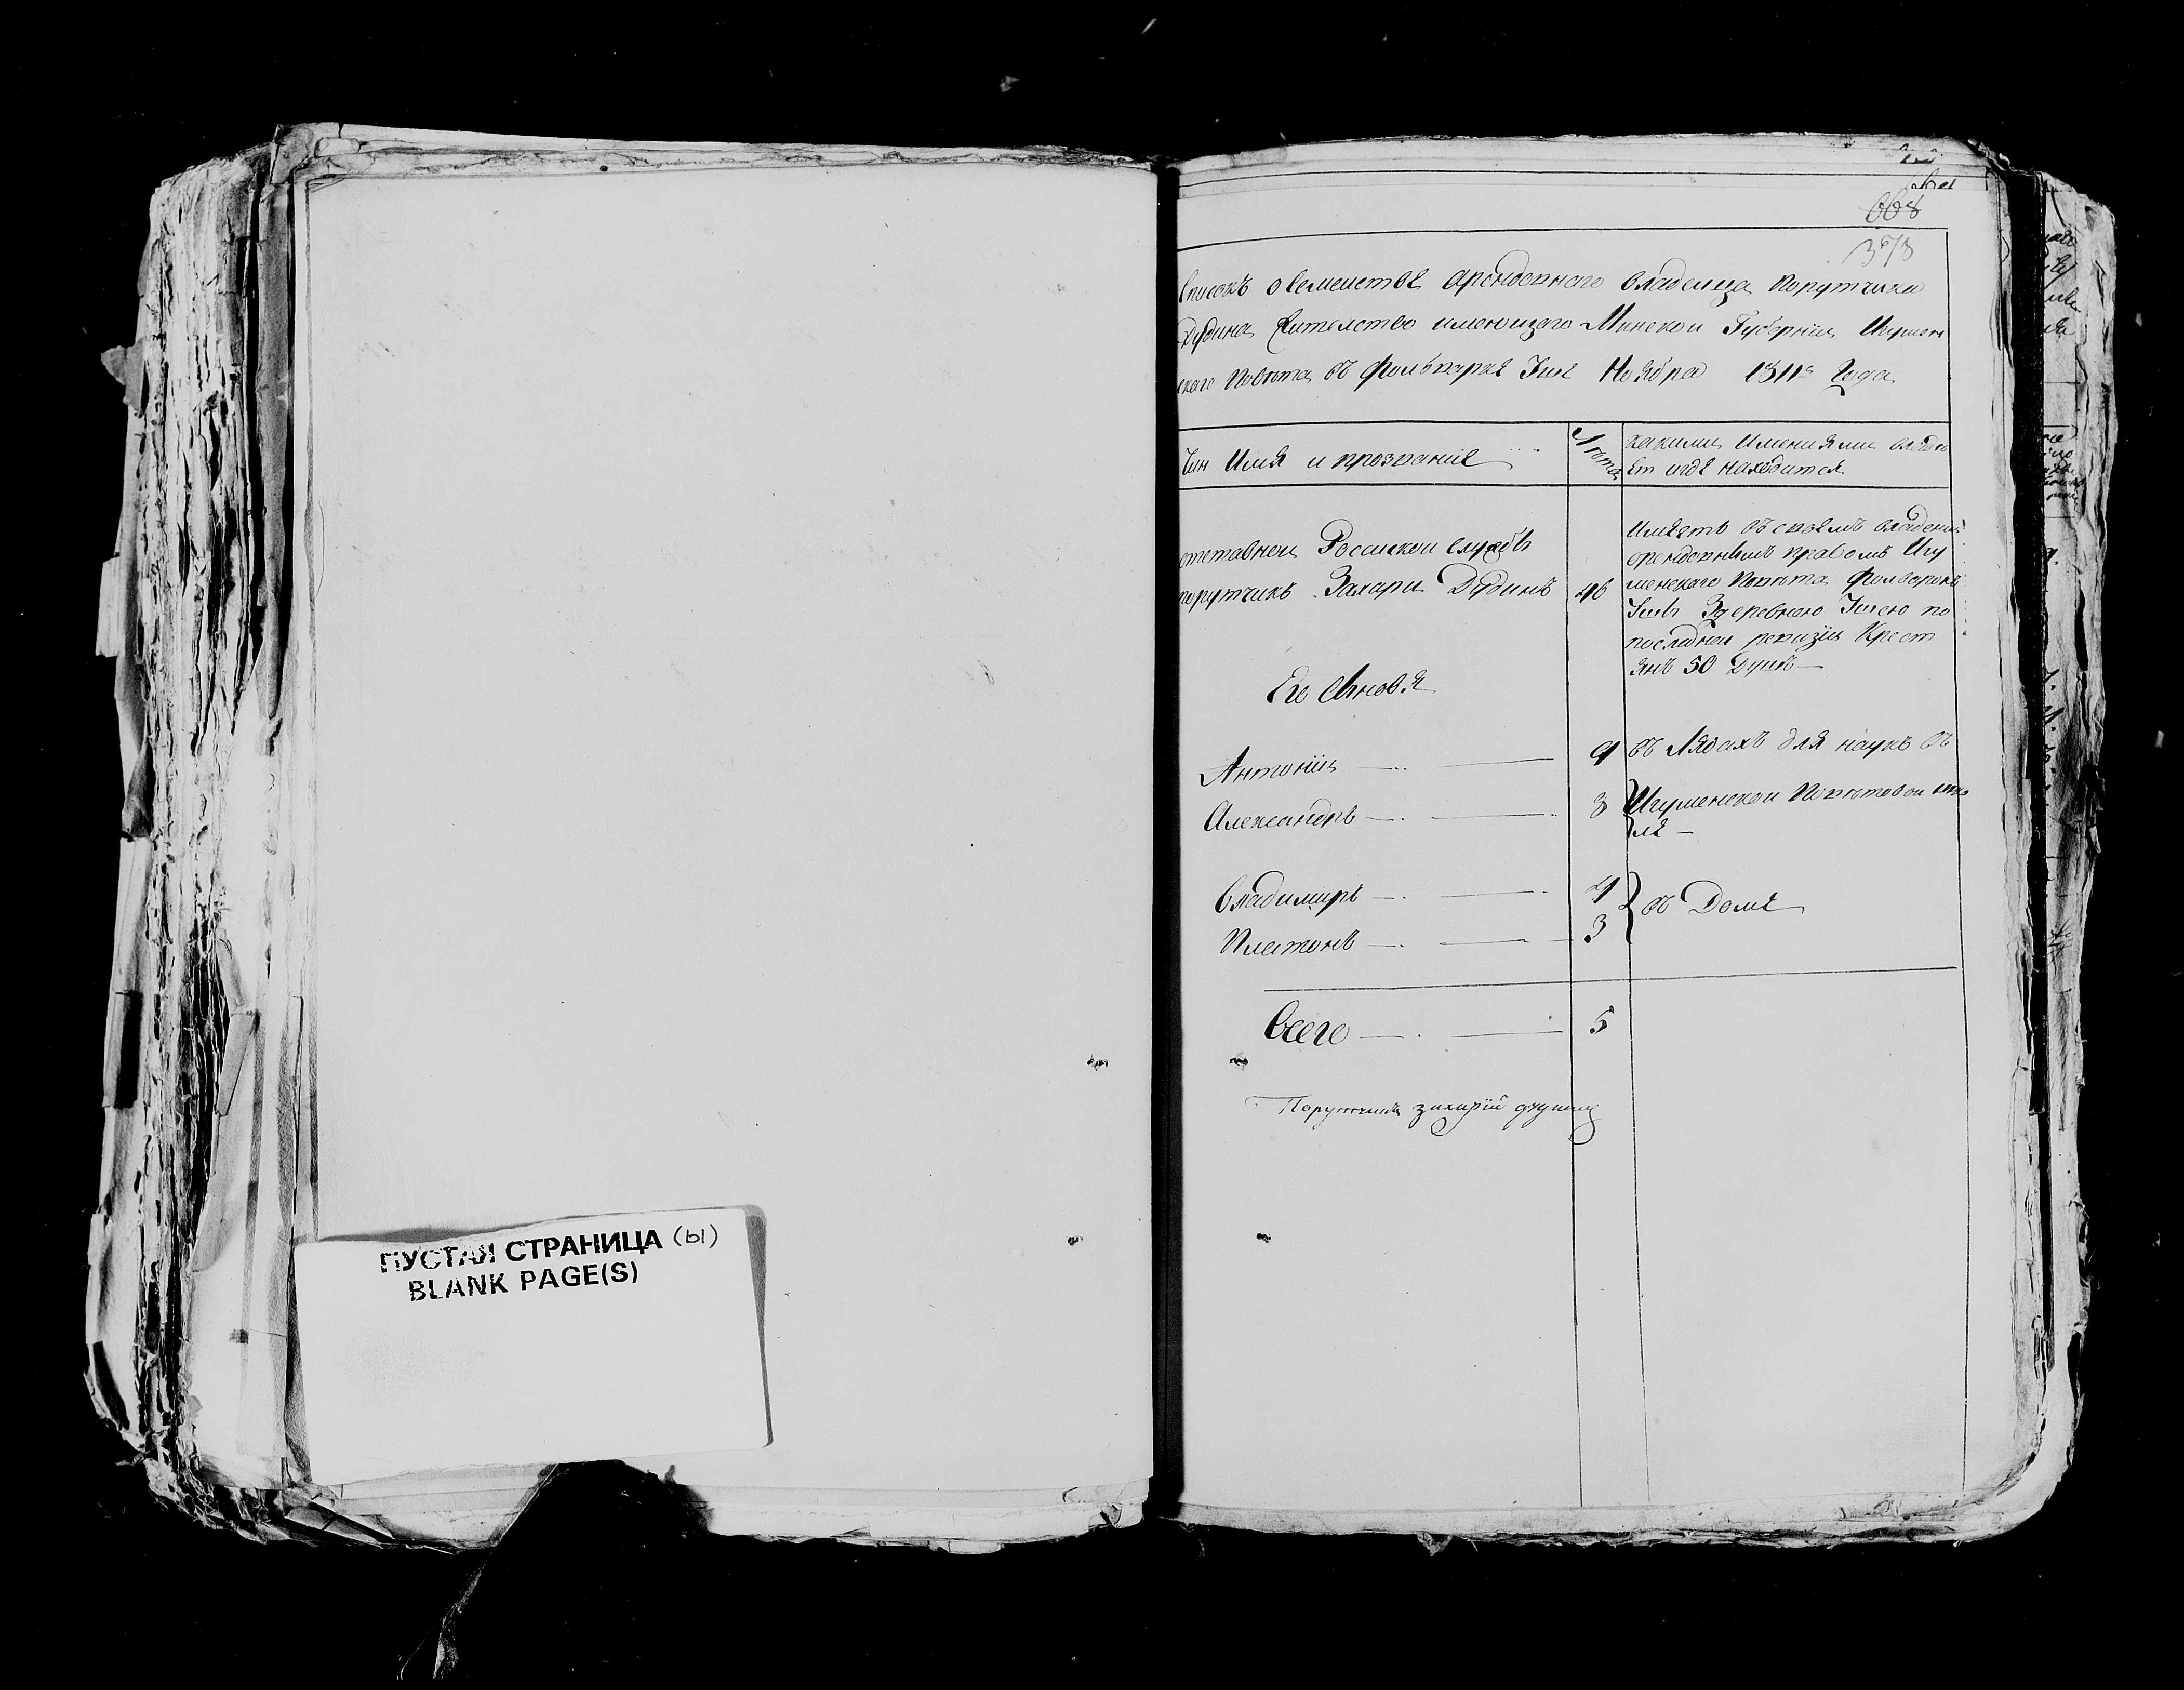 ПУСТАЯ СТРАНИЦА (ы)
BLANK PAGE(S)
668
373
Списокъ о Семействѣ арендовнаго владелца Порутчика
Дудина Жителство имеющаго Минской Губерніи Игумен
скаго Повѣта въ фольваркѣ Ноября 1811г Года
Чин Имя и прозваніе
Лѣта
какими Имениями владѣ
ет и гдѣ находится
отставной Росиской службы
порутчикъ Захари Дудинъ 46
Имѣетъ въ своемъ владении
орендовнымъ правомъ Игу
менскаго Повѣта Фолваркъ
Здеревнею по
последней ревизіи Крест
янъ 50 Душъ —
Его Сыновя
Антоній — 9
въ Лядахъ для наукъ въ
Александръ — 8
Игуменской Повѣтовой шко
лѣ —
Владимиръ — 4
Платонъ — 3
въ Домѣ
Всего — 5
Порутчикъ захарій дудинъ